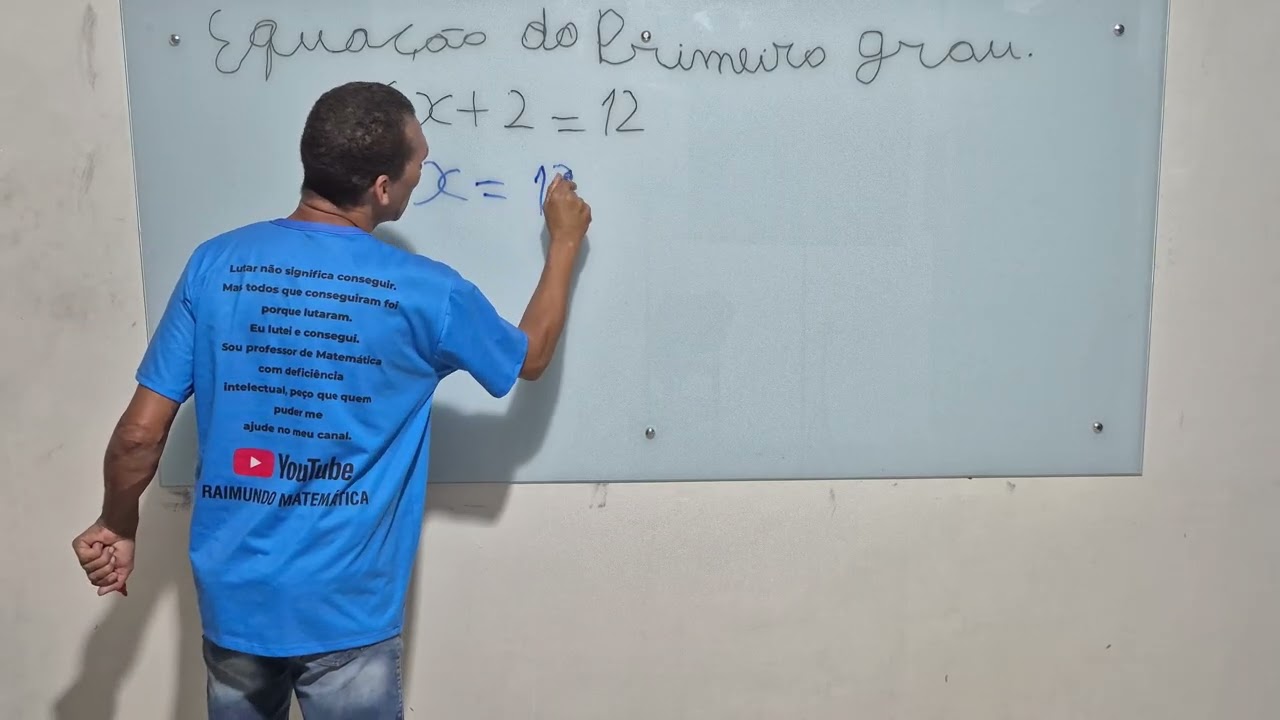 Equação do Primeiro grau.
x + 2 = 12
x = 12
Lutar não significa conseguir.
Mas todos que conseguiram foi
porque lutaram.
Eu lutei e consegui.
Sou professor de Matemática
com deficiência
intelectual, peço que quem
puder me
ajude no meu canal.
YouTube
RAIMUNDO MATEMÁTICA